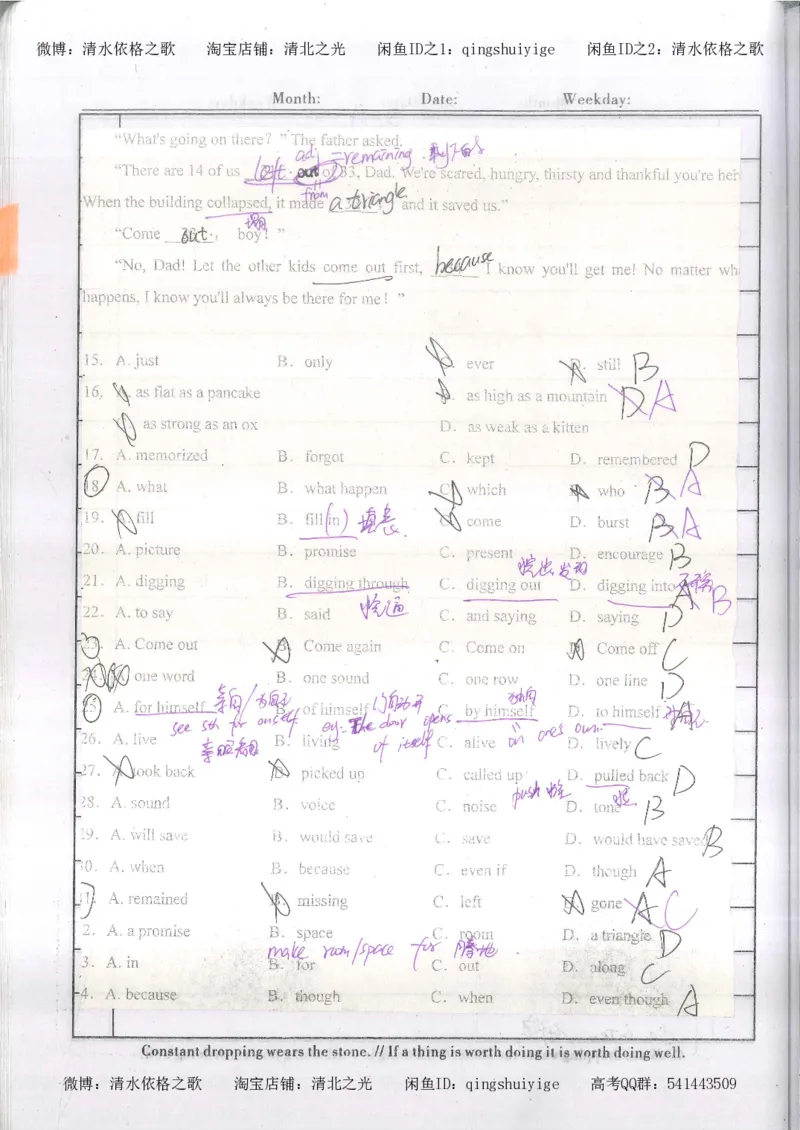 微博：清水依格之歌 淘宝店铺：清北之光 闲鱼ID之1：qingshuiyige 闲鱼ID之2：清水依格之歌
Month: Date: Weekday:
"What's going on there? " The father asked.
adj =remaining 剩下的
"There are 14 of us left out of 33, Dad. We're scared, hungry, thirsty and thankful you're her
from
When the building collapsed, it made a triangle, and it saved us."
塌
"Come out, boy! "
"No, Dad! Let the other kids come out first, because I know you'll get me! No matter wh
happens, I know you'll always be there for me! "
15. A. just B. only C. ever D. still B
16. A. as flat as a pancake B. as high as a mountain D A
C. as strong as an ox D. as weak as a kitten
17. A. memorized B. forgot C. kept D. remembered D
18. A. what B. what happen C. which D. who B A
19. A. fill B. fill(in) 填表 C. come D. burst B A
20. A. picture B. promise C. present D. encourage B
挖出 发现
21. A. digging B. digging through C. digging out D. digging into A B
挖通
22. A. to say B. said C. and saying D. saying D
23. A. Come out B. Come again C. Come on D. Come off C
24. A. one word B. one sound C. one row D. one line D
亲自/为自己 独自
25. A. for himself B. of himself 自动开 C. by himself D. to himself A
see sth for oneself eg: The door opens on one's own.
亲眼看 of itself
26. A. live B. living C. alive D. lively C
27. A. took back B. picked up C. called up D. pulled back D
push 推
28. A. sound B. voice C. noise D. tone B
29. A. will save B. would save C. save D. would have saved B
30. A. when B. because C. even if D. though A
31. A. remained B. missing C. left D. gone A C
2. A. a promise B. space C. room D. a triangle D
make room/space for 腾地
3. A. in B. for C. out D. along C
4. A. because B. though C. when D. even though A
Constant dropping wears the stone. // If a thing is worth doing it is worth doing well.
微博：清水依格之歌 淘宝店铺：清北之光 闲鱼ID：qingshuiyige 高考QQ群：541443509